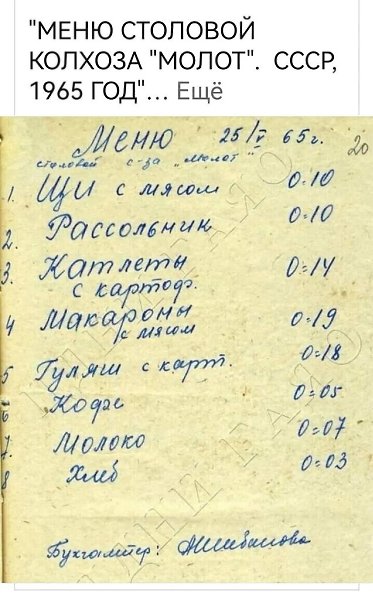 "МЕНЮ СТОЛОВОЙ
КОЛХОЗА "МОЛОТ". СССР,
1965 ГОД"... Ещё
Меню 25/V 65г. 20
столовой с-за „Молот"
1. Щи с мясом 0=10
2. Рассольник 0=10
3. Катлеты 0=14
с картоф.
4 Макароны 0=19
с мясом
5 Гуляш с карт. 0=18
6 Кофе 0=05
7. Молоко 0=07
8 Хлеб 0=03
Бухгалтер: